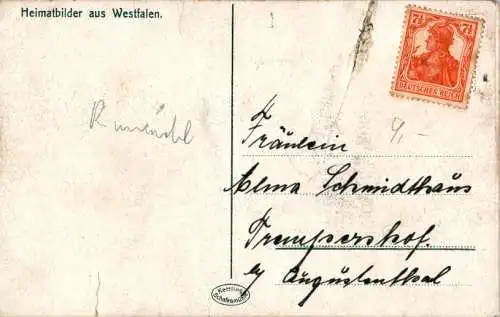 Heimatbilder aus Westfalen.
7½ 7½
DEUTSCHES REICH
4,-
Fräulein
Alma Schmidthaus
Trempershof.
b/ Augustenthal
Kettling
Schalksmühle